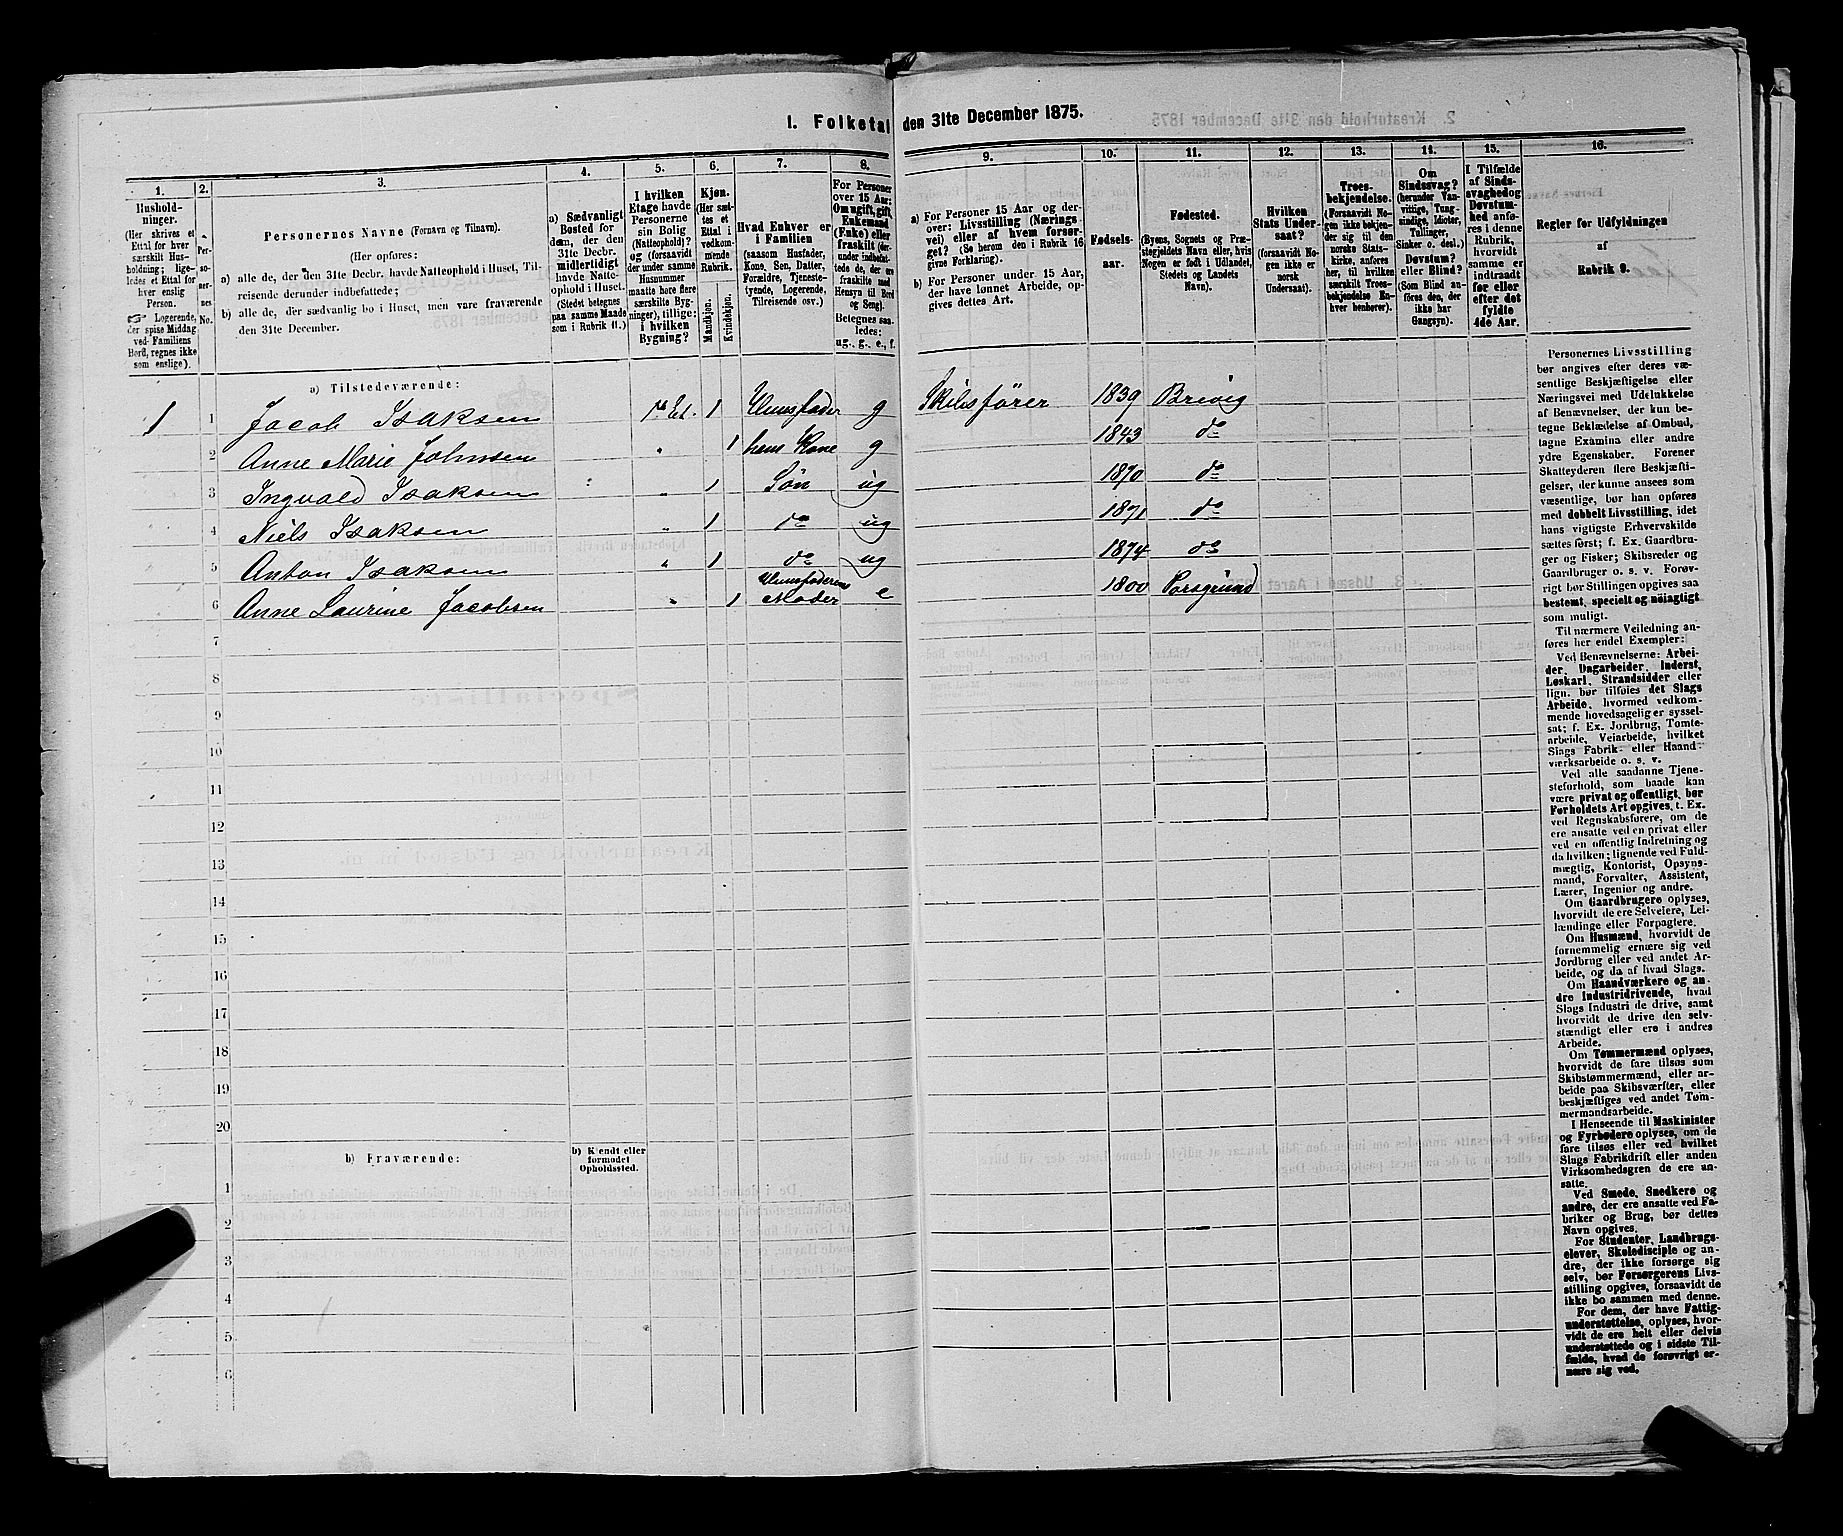 1. Folketal den 31te December 1875.
1.
Hushold-
ninger.
(Her skrives et
Ettal for hver
særskilt Hus-
holdning; lige-
ledes et Ettal for
hver enslig
Person.
☞ Logerende,
der spise Middag
ved Familiens
Bord, regnes ikke
som enslige).
2.
Per-
so-
ner-
nes
No.
3.
Personernes Navne (Fornavn og Tilnavn).
(Her opføres:
a) alle de, der den 31te Decbr. havde Natteophold i Huset, Til-
reisende derunder indbefattede;
b) alle de, der sædvanlig bo i Huset, men vare fraværende
den 31te December.
4.
a) Sædvanligt
Bosted for
dem, der den
31te Decbr.
midlertidigt
havde Natte-
ophold i Huset.
(Stedet betegnes
paa samme Maade
som i Rubrik 11.)
5.
I hvilken
Etage havde
Personerne
sin Bolig
(Natteophold)?
og (forsaavidt
der under samme
Husnummer
maatte høre flere
særskilte Byg-
ninger), tillige:
i hvilken
Bygning?
6.
Kjøn.
(Her sæt-
tes et
Ettal i
vedkom-
mende
Rubrik.
Mandkjøn.
Kvindekjøn.
7.
Hvad Enhver er
i Familien
(saasom Husfader,
Kone, Søn, Datter,
Forældre, Tjeneste-
tyende, Logerende,
Tilreisende osv.)
8.
For Personer
over 15 Aar:
Om ugift, gift,
Enkemand
(Enke) eller
fraskilt (der-
under indbefat-
tede de, der ere
fraskilte med
Hensyn til Bord
og Seng).
Betegnes saa-
ledes:
ug., g., e., f.
9.
a) For Personer 15 Aar og der-
over: Livsstilling (Nærings-
vei) eller af hvem forsør-
get? (Se herom den i Rubrik 16
givne Forklaring).
b) For Personer under 15 Aar,
der have lønnet Arbeide, op-
gives dettes Art.
10.
Fødsels-
aar.
11.
Fødested.
(Byens, Sognets og Præ-
stegjeldets Navn eller, hvis
Nogen er født i Udlandet,
Stedets og Landets
Navn).
12.
Hvilken
Stats Under-
saat?
(forsaavidt No-
gen ikke er
norsk
Undersaat).
13.
Troes-
bekjendelse.
(Forsaavidt No-
gen ikke bekjen-
der sig til den
norske Stats-
kirke, anføres
her, til hvilken
særskilt Troes-
bekjendelse En-
hver henhører).
14.
Om
Sindssvag?
(herunder Van-
vittige, Tung-
sindige, Idioter,
Tullinger,
Sinker o. desl.)
Døvstum?
eller Blind?
(Som Blind an-
føres den, der
ikke har
Gangsyn).
15.
I Tilfælde
af Sinds-
svaghed og
Døvstum-
hed anfø-
res i denne
Rubrik,
hvorvidt
samme er
indtraadt
før eller
efter det
fyldte
4de Aar.
16.
Regler for Udfyldningen
af
Rubrik 9.
a) Tilstedeværende:
1 1 Jacob Isaksen 1ste Et. 1 Huusfader g Skibsfører 1839 Brevig
2 Anne Marie Johnsen " 1 hans Kone g 1843 do
3 Ingvald Isaksen " 1 Søn ug 1870 do
4 Niels Isaksen " 1 do ug 1871 do
5 Anton Isaksen " 1 do ug 1874 do
6 Anne Laurine Jacobsen " 1 Huusfaderens Moder e 1800 Porsgrund
7
8
9
10
11
12
13
14
15
16
17
18
19
20
b) Fraværende:
b) Kjendt eller
formodet
Opholdssted.
1
2
3
4
5
6
Personernes Livsstilling
bør angives efter deres væ-
sentlige Beskjæftigelse eller
Næringsvei med Udelukkelse
af Benævnelser, der kun be-
tegne Beklædelse af Ombud,
tagne Examina eller andre
ydre Egenskaber. Forener
Skatteyderen flere Beskjæfti-
gelser, der kunne ansees som
væsentlige, bør han opføres
med dobbelt Livsstilling, idet
hans vigtigste Erhvervskilde
sættes først; f. Ex. Gaardbru-
ger og Fisker; Skibsreder og
Gaardbruger o. s. v. Forøv-
rigt bør Stillingen opgives saa
bestemt, specielt og nøiagtigt
som muligt.
Til nærmere Veiledning an-
føres her endel Exempler:
Ved Benævnelserne: Arbei-
der, Dagarbeider, Inderst,
Løskarl, Strandsidder eller
lign. bør tilføies det Slags
Arbeide, hvormed vedkom-
mende hovedsagelig er syssel-
sat; f. Ex. Jordbrug, Tomte-
arbeide, Veiarbeide, hvilket
Slags Fabrik- eller Haand-
værksarbeide o. s. v.
Ved alle saadanne Tjene-
steforhold, som baade kan
være privat og offentligt, bør
Forholdets Art opgives, t. Ex.
ved Regnskabsførere, om de
ere ansatte ved en privat eller
ved en offentlig Indretning og
da hvilken; lignende ved Fuld-
mægtig, Kontorist, Opsyns-
mand, Forvalter, Assistent,
Lærer, Ingeniør og andre.
Om Gaardbrugere oplyses,
hvorvidt de ere Selveiere, Lei-
lændinge eller Forpagtere.
Om Husmænd, hvorvidt de
fornemmelig ernære sig ved
Jordbrug eller ved andet Ar-
beide, og da af hvad Slags.
Om Haandværkere og an-
dre Industridrivende, hvad
Slags Industri de drive, samt
hvorvidt de drive den selv-
stændigt eller ere i andres
Arbeide.
Om Tømmermænd oplyses,
hvorvidt de fare tilsøs som
Skibstømmermænd, eller ar-
beide paa Skibsværfter, eller
beskjæftiges ved andet Tøm-
mermandsarbeide.
I Henseende til Maskinister
og Fyrbødere oplyses, om de
fare tilsøs eller ved hvilket
Slags Fabrikdrift eller anden
Virksomhedsgren de ere an-
satte.
Ved Smede, Snedkere og
andre, der ere ansatte ved Fa-
briker og Brug, bør dettes
Navn opgives.
For Studenter, Landbrugs-
elever, Skoledisciple og an-
dre, der ikke forsørge sig
selv, bør Forsørgerens Livs-
stilling opgives, forsaavidt de
ikke bo sammen med denne.
For dem, der have Fattig-
understøttelse, oplyses, hvor-
vidt de ere helt eller delvis
understøttede og i sidste Til-
fælde, hvad de forøvrigt er-
nære sig ved.